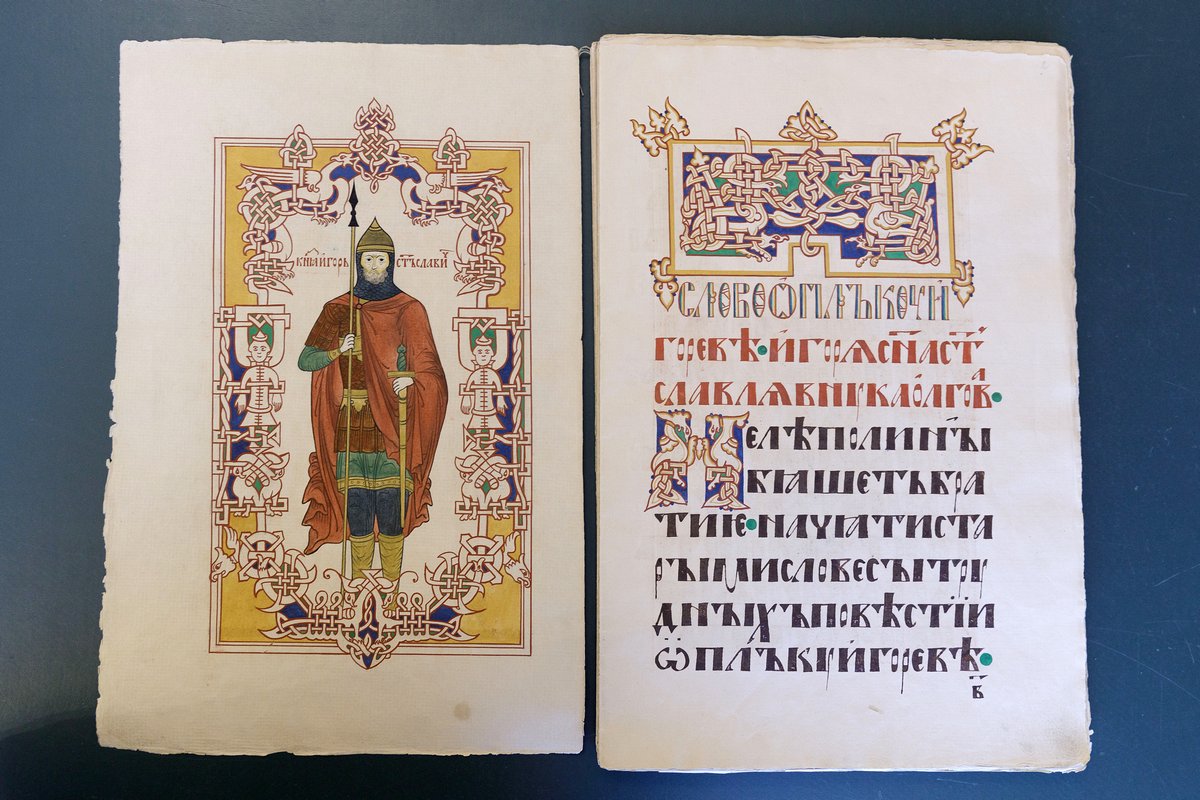 КН҃ꙖИ҆ГОРЬ СТ҃ЪСЛАВИ҃
СЛОВОѠПЛЪКОУИ
ГОРЕВѢ·И҆ГОРѦСН҃АСТ҃
СЛАВЛѦВНꙋКАОЛГОВⷶ·
НЕЛѢПОЛИНЫ
БѦШЕТЬБРА
ТИѤ·НАЧѦТИСТА
РЫМИСЛОВЕСЫТРꙋ
ДНЫХЪПОВѢСТЇИ
ѠПЛЪКꙋИ҆ГОРЕВѢ·
В҃